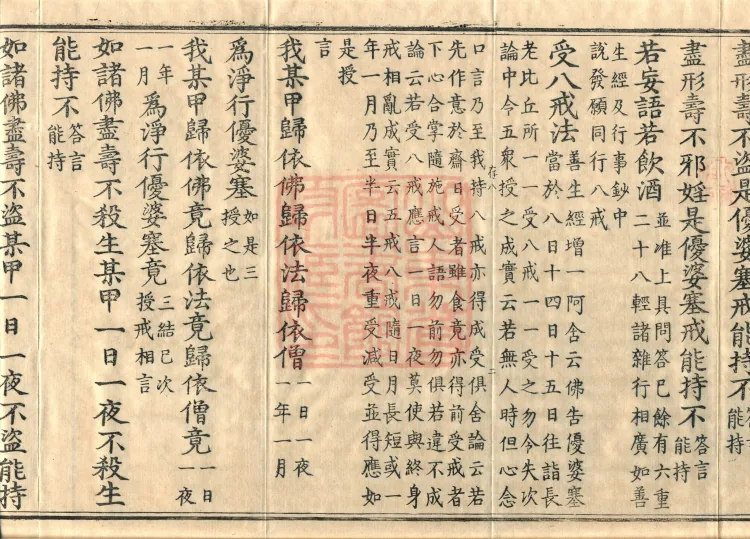 盡形壽不盜是優婆塞戒能持不答言能持
盡形壽不邪婬是優婆塞戒能持不答言能持
若妄語若飲酒並准上具問答已餘有六重二十八輕諸雜行相廣如善
生經及行事鈔中
說發願同行八戒
受八戒法善生經增一阿舍云佛告優婆塞當於八日十四日十五日往詣長
老比丘所一一受八戒一一受之勿令失次
論中令五衆授之成實云若無人時但心念
口言乃至我持八戒亦得成受俱舍論云若
先作意於齋日受者雖食竟亦得前受戒者
下心合掌隨施戒人語勿前勿俱若違不成
論云若受八戒應言一日一夜莫使與終身
戒相亂成實云五戒八戒隨日月長短或一
年一月乃至半日半夜重受減受並得應如
是授
言
我某甲歸依佛歸依法歸依僧一日一夜一年一月
爲淨行優婆塞如是三授之也
我某甲歸依佛竟歸依法竟歸依僧竟一日一夜
一年一月爲淨行優婆塞竟三結已次授戒相言
如諸佛盡壽不殺生某甲一日一夜不殺生
能持不答言能持
如諸佛盡壽不盜某甲一日一夜不盜能持